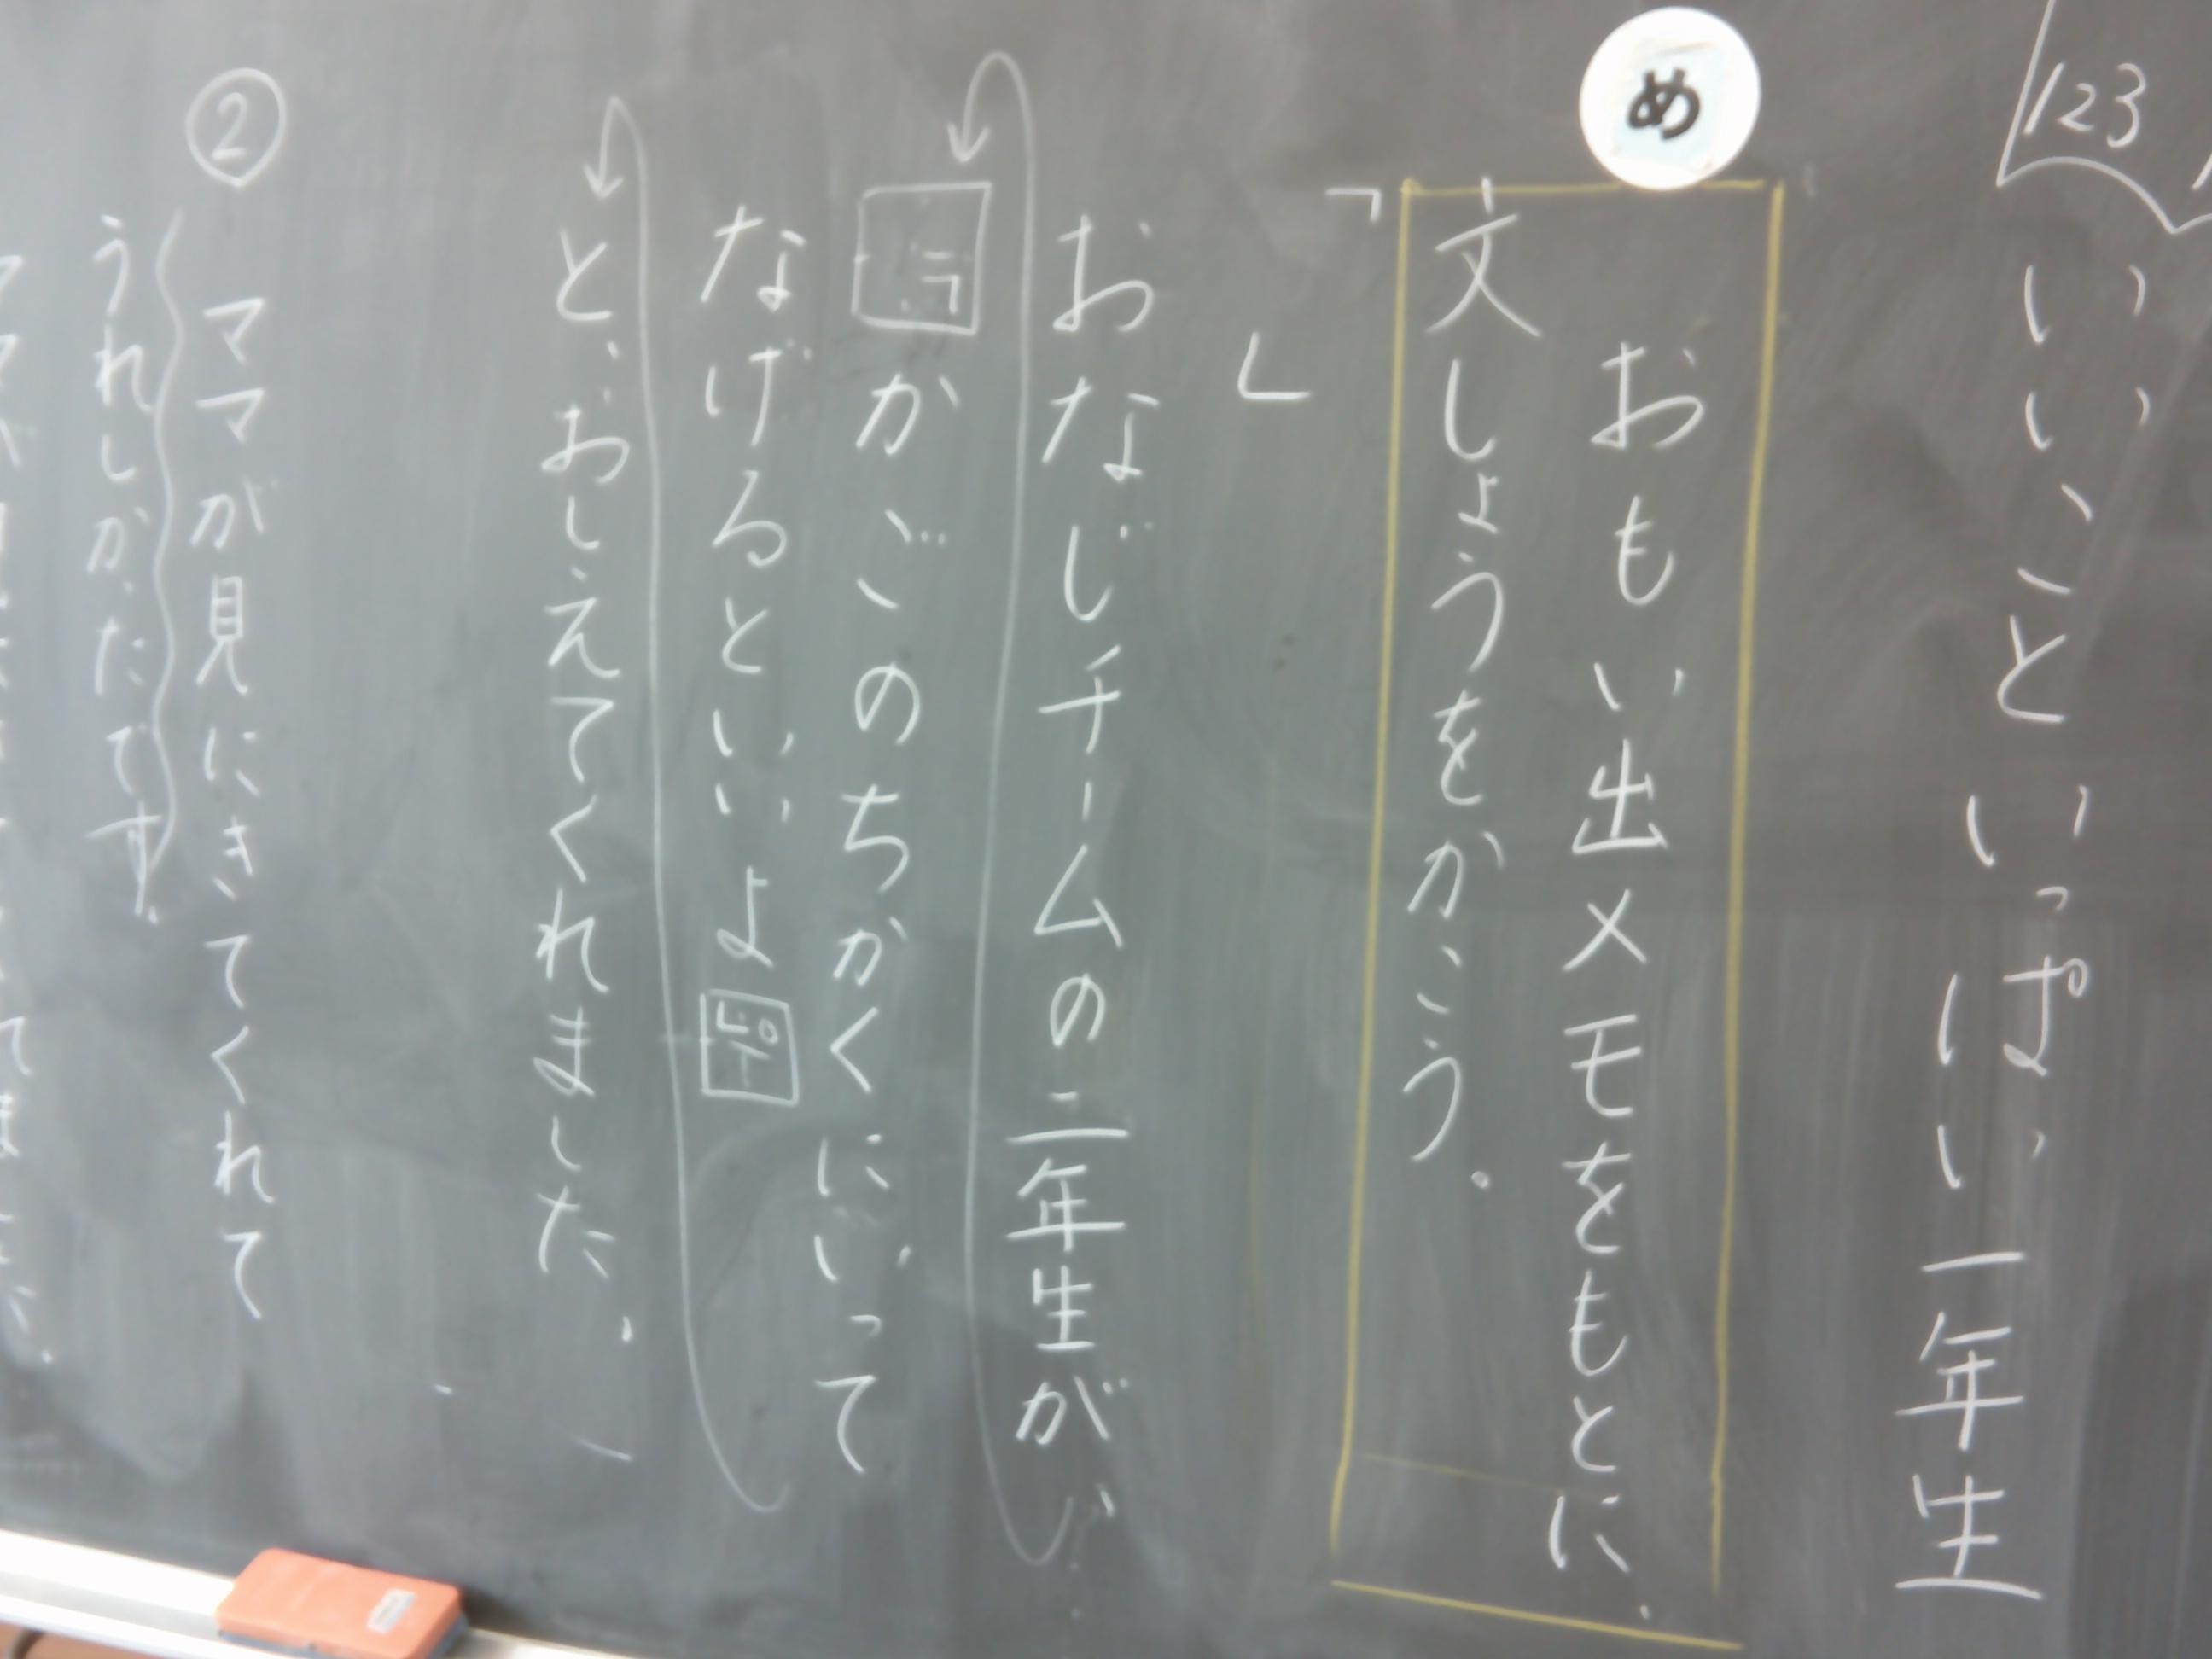 123
いいこといっぱい一年生
め
おもい出メモをもとに、
文しょうをかこう。
「
」
おなじチームの二年生が、
「かごのちかくにいって
なげるといいよ。」
と、おしえてくれました。
②
ママが見にきてくれて
うれしかたです。